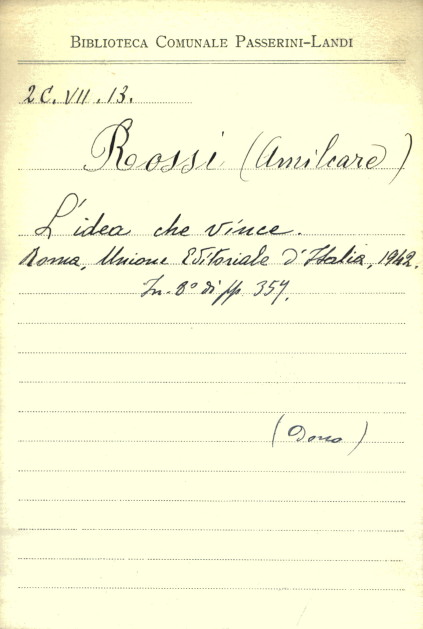 BIBLIOTECA COMUNALE PASSERINI-LANDI
2C. VII. 13.
Rossi (Amilcare)
L'idea che vince.
Roma, Unione Editoriale d'Italia, 1942.
In-8° di pp. 357.
(Dono)